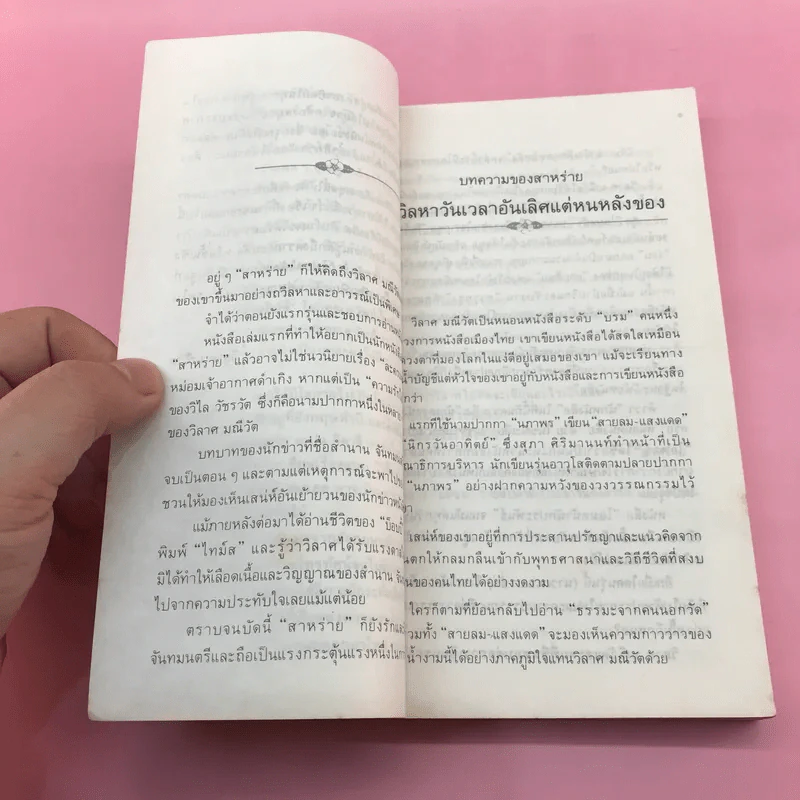 อยู่ ๆ "สาหร่าย" ก็ให้คิดถึงวิลาศ มณีวัต
ของเขาขึ้นมาอย่างถวิลหาและอาวรณ์เป็นพิเศษ
จำได้ว่าตอนยังแรกรุ่นและชอบการอ่าน
หนังสือเล่มแรกที่ทำให้อยากเป็นนักหนังสือ
"สาหร่าย" แล้วอาจไม่ใช่นวนิยายเรื่อง "ละคร
หม่อมเจ้าอากาศดำเกิง หากแต่เป็น "ความรัก
ของวิไล วัชรวัต ซึ่งก็คือนามปากกาหนึ่งในหลาย
ของวิลาศ มณีวัต
บทบาทของนักข่าวที่ชื่อสำนาน จันทมน
จบเป็นตอน ๆ และตามแต่เหตุการณ์จะพาไป
ชวนให้มองเห็นเสน่ห์อันเย้ายวนของนักข่าว
แม้ภายหลังต่อมาได้อ่านชีวิตของ "บ๊อบบี้
พิมพ์ "ไทม์ส" และรู้ว่าวิลาศได้รับแรงดาล
มิได้ทำให้เลือดเนื้อและวิญญาณของสำนาน จัน
ไปจากความประทับใจเลยแม้แต่น้อย
ตราบจนบัดนี้ "สาหร่าย" ก็ยังรักและ
จันทมนตรีและถือเป็นแรงกระตุ้นแรงหนึ่งใน
บทความของสาหร่าย
วิลหาวันเวลาอันเลิศแต่หนหลังของ
วิลาศ มณีวัตเป็นหนอนหนังสือระดับ "บรม" คนหนึ่ง
วงการหนังสือเมืองไทย เขาเขียนหนังสือได้สดใสเหมือน
ดวงตาที่มองโลกในแง่ดีอยู่เสมอของเขา แม้จะเรียนทาง
บัญชีแต่หัวใจของเขาอยู่กับหนังสือและการเขียนหนังสือ
กว่า
แรกที่ใช้นามปากกา "นภาพร" เขียน "สายลม-แสงแดด"
"นิกรวันอาทิตย์" ซึ่งสุภา ศิริมานนท์ทำหน้าที่เป็น
ณาธิการบริหาร นักเขียนรุ่นอาวุโสติดตามปลายปากกา
"นภาพร" อย่างฝากความหวังของวงวรรณกรรมไว้
เสน่ห์ของเขาอยู่ที่การประสานปรัชญาและแนวคิดจาก
นตกให้กลมกลืนเข้ากับพุทธศาสนาและวิถีชีวิตที่สงบ
นของคนไทยได้อย่างงดงาม
ใครก็ตามที่ย้อนกลับไปอ่าน "ธรรมะจากคนนอกวัด"
วมทั้ง "สายลม-แสงแดด" จะมองเห็นความกาววาวของ
น้ำงามนี้ได้อย่างภาคภูมิใจแทนวิลาศ มณีวัตด้วย